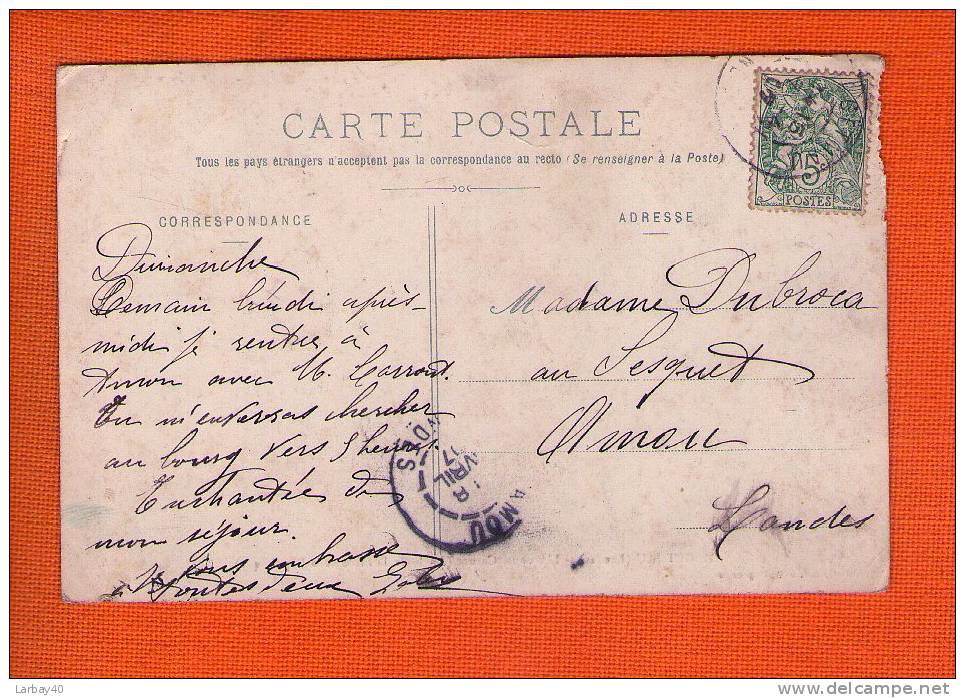 CARTE POSTALE
Tous les pays étrangers n'acceptent pas la correspondance au recto (Se renseigner à la Poste)
CORRESPONDANCE
Dimanche
Demain lundi après-
midi je rentre à
Amou avec M.
Tu m'enverras chercher
au bourg vers 5 heures.
Enchantée de
mon séjour.
Vous embrasse
toutes deux
ADRESSE
Madame Dubroca
au Lesquet
Amou
Landes
5
POSTES
AMOU
AVRIL
07
Larbay40
delcampe.net